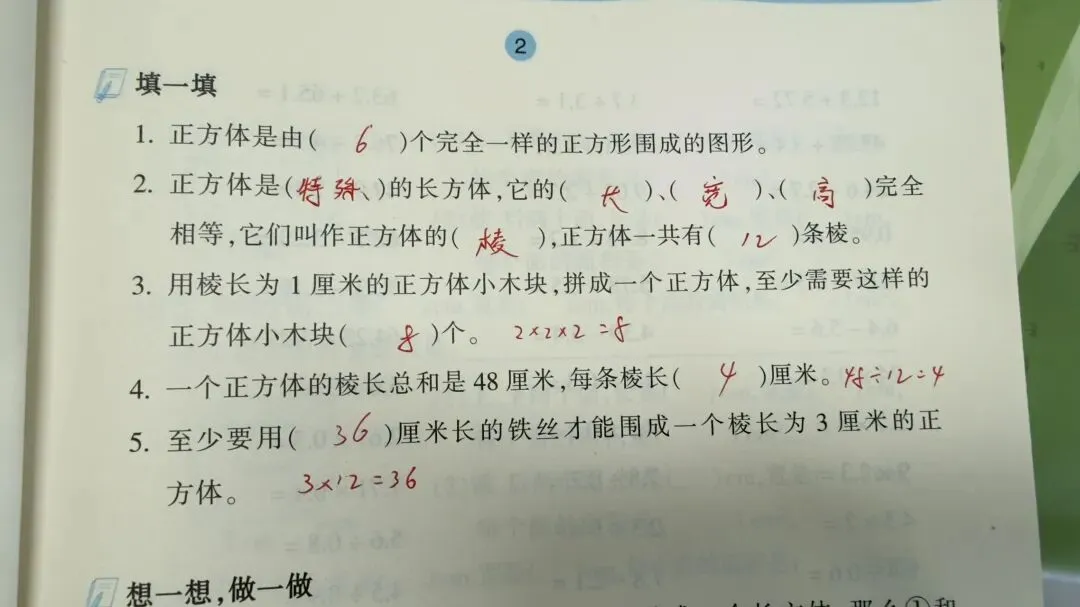 2
填一填
1. 正方体是由( 6 )个完全一样的正方形围成的图形。
2. 正方体是(特殊)的长方体,它的( 长 )、( 宽 )、( 高 )完全
相等,它们叫作正方体的( 棱 ),正方体一共有( 12 )条棱。
3. 用棱长为 1 厘米的正方体小木块,拼成一个正方体,至少需要这样的
正方体小木块( 8 )个。 2×2×2=8
4. 一个正方体的棱长总和是 48 厘米,每条棱长( 4 )厘米。48÷12=4
5. 至少要用( 36 )厘米长的铁丝才能围成一个棱长为 3 厘米的正
方体。 3×12=36
想一想,做一做